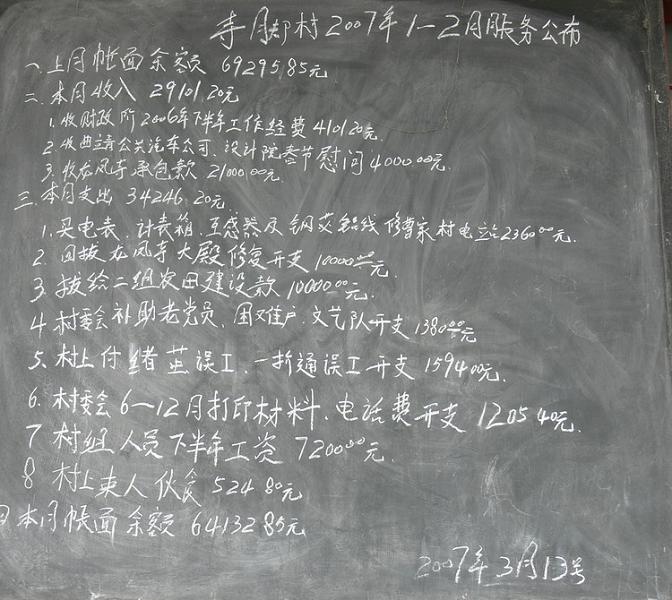 寺脚村2007年1—2月务公布
一、上月帐面余额 69295.85元
二、本月收入 29101.20元
1.收财政所2006年下半年工作经费4101.20元.
2.收曲靖公共汽车公司、设计院春节慰问4000.00元.
3.收龙凤寺承包款 21000.00元.
三.本月支出 34246.20元.
1.买电表、计表箱、互感器及铜芯铝线修家村电站2360.00元.
2.回拨龙凤寺大殿修复开支10000.00元.
3.拨给二组农田建设款10000.00元.
4.村委会补助老党员、困难户、文艺队开支1380.00元
5.村上付误工、一折通误工开支1594.00元.
6.村委会6—12月打印材料、电话费开支1205.40元.
7 村组人员下半年工资 7200.00元.
8 村上来人伙食524.80元
四本月帐面余额 64132.85元
2007年3月13号